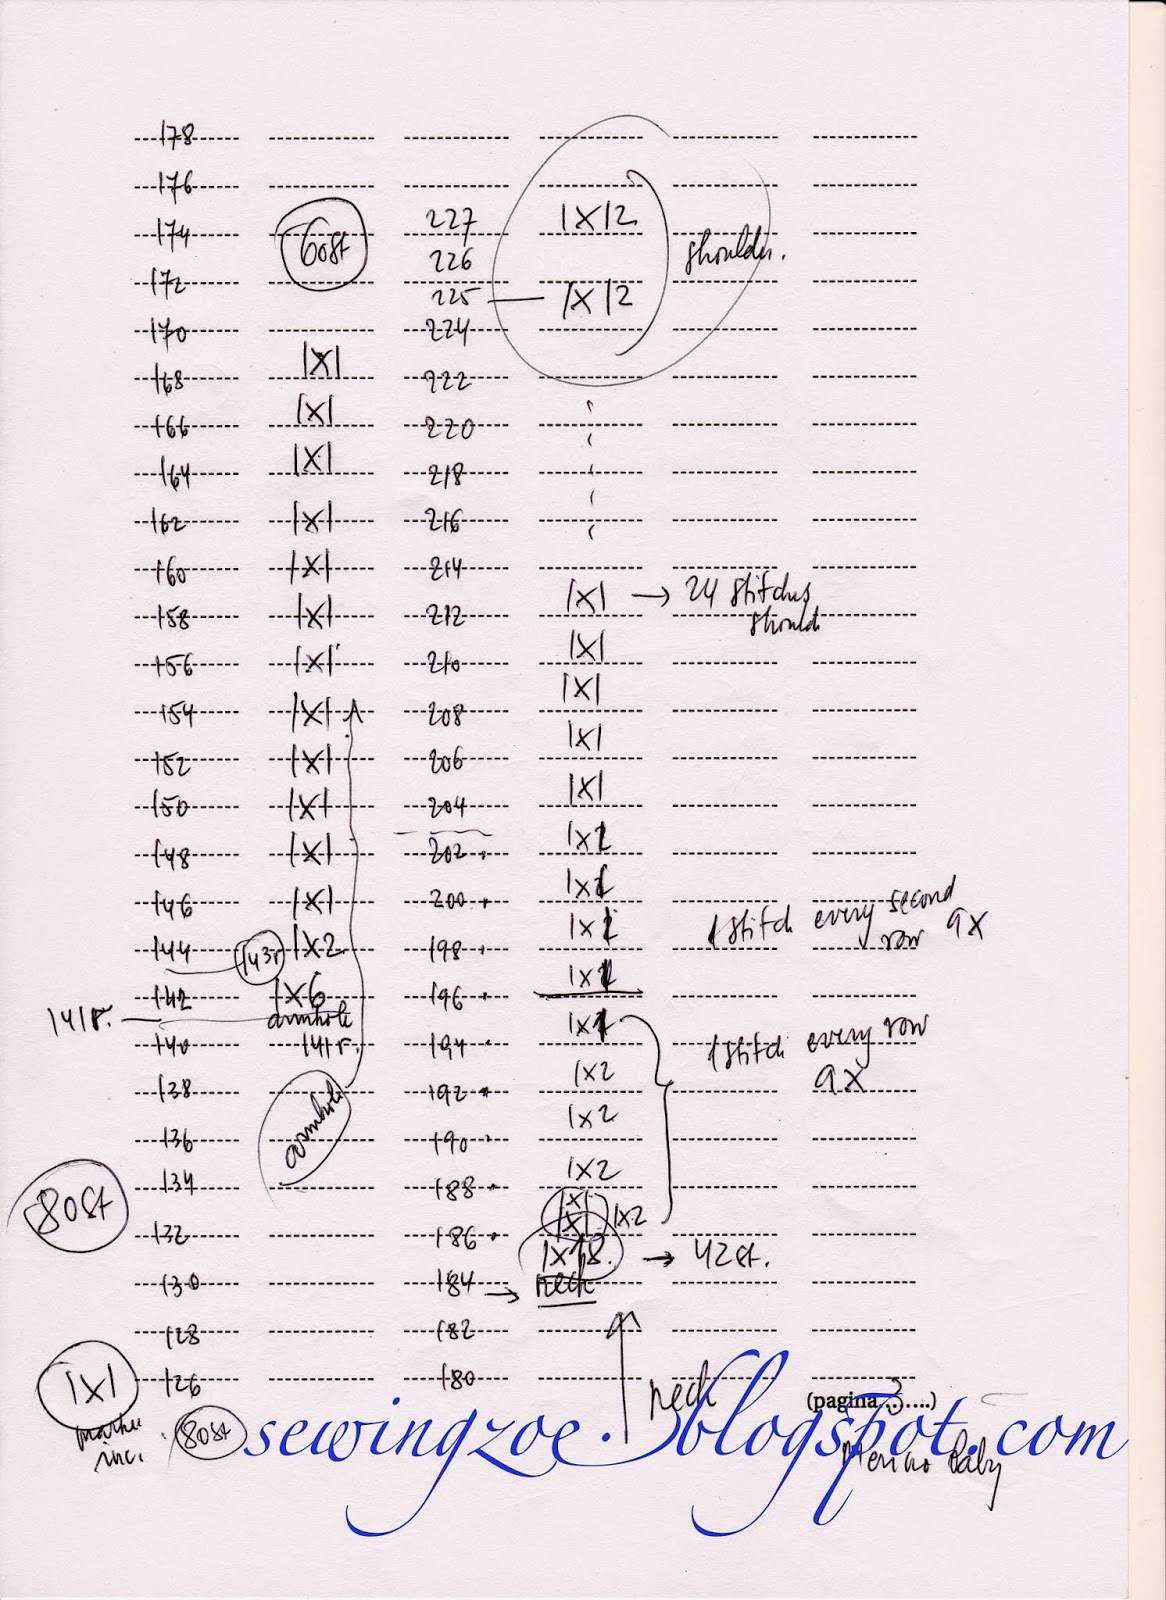 178
176
174 60st 227 1X12 shoulder.
226
172
225 — 1X12
170 224
1X1
168 222
166 1X1 220
164 1X1 218
162 1X1 216
160 1X1 214
1X1 → 24 stitches
158 1X1 212 should
156 1X1 210 1X1
154 1X1 208 1X1
152 1X1 206 1X1
150 1X1 204 1X1
148 1X1 202. 1x1
146 1X1 200. 1x1
1 stitch every second
144 143r 1X2 198. 1x1 row 9X
142 1X6 196. 1x1
141r. — armhole
140 141r. 194. 1x1 1 stitch every row
138 192. 1x2 9X
armhole
136 190. 1x2
134 188. 1x2
80st 1x1
132 186. 1x1 1x2
1x18. → 42st.
130 184 → neck
128 182
1X1 126 180
neck (pagina 3.....)
inc. 80st sewingzoe.blogspot.com
Merino Baby